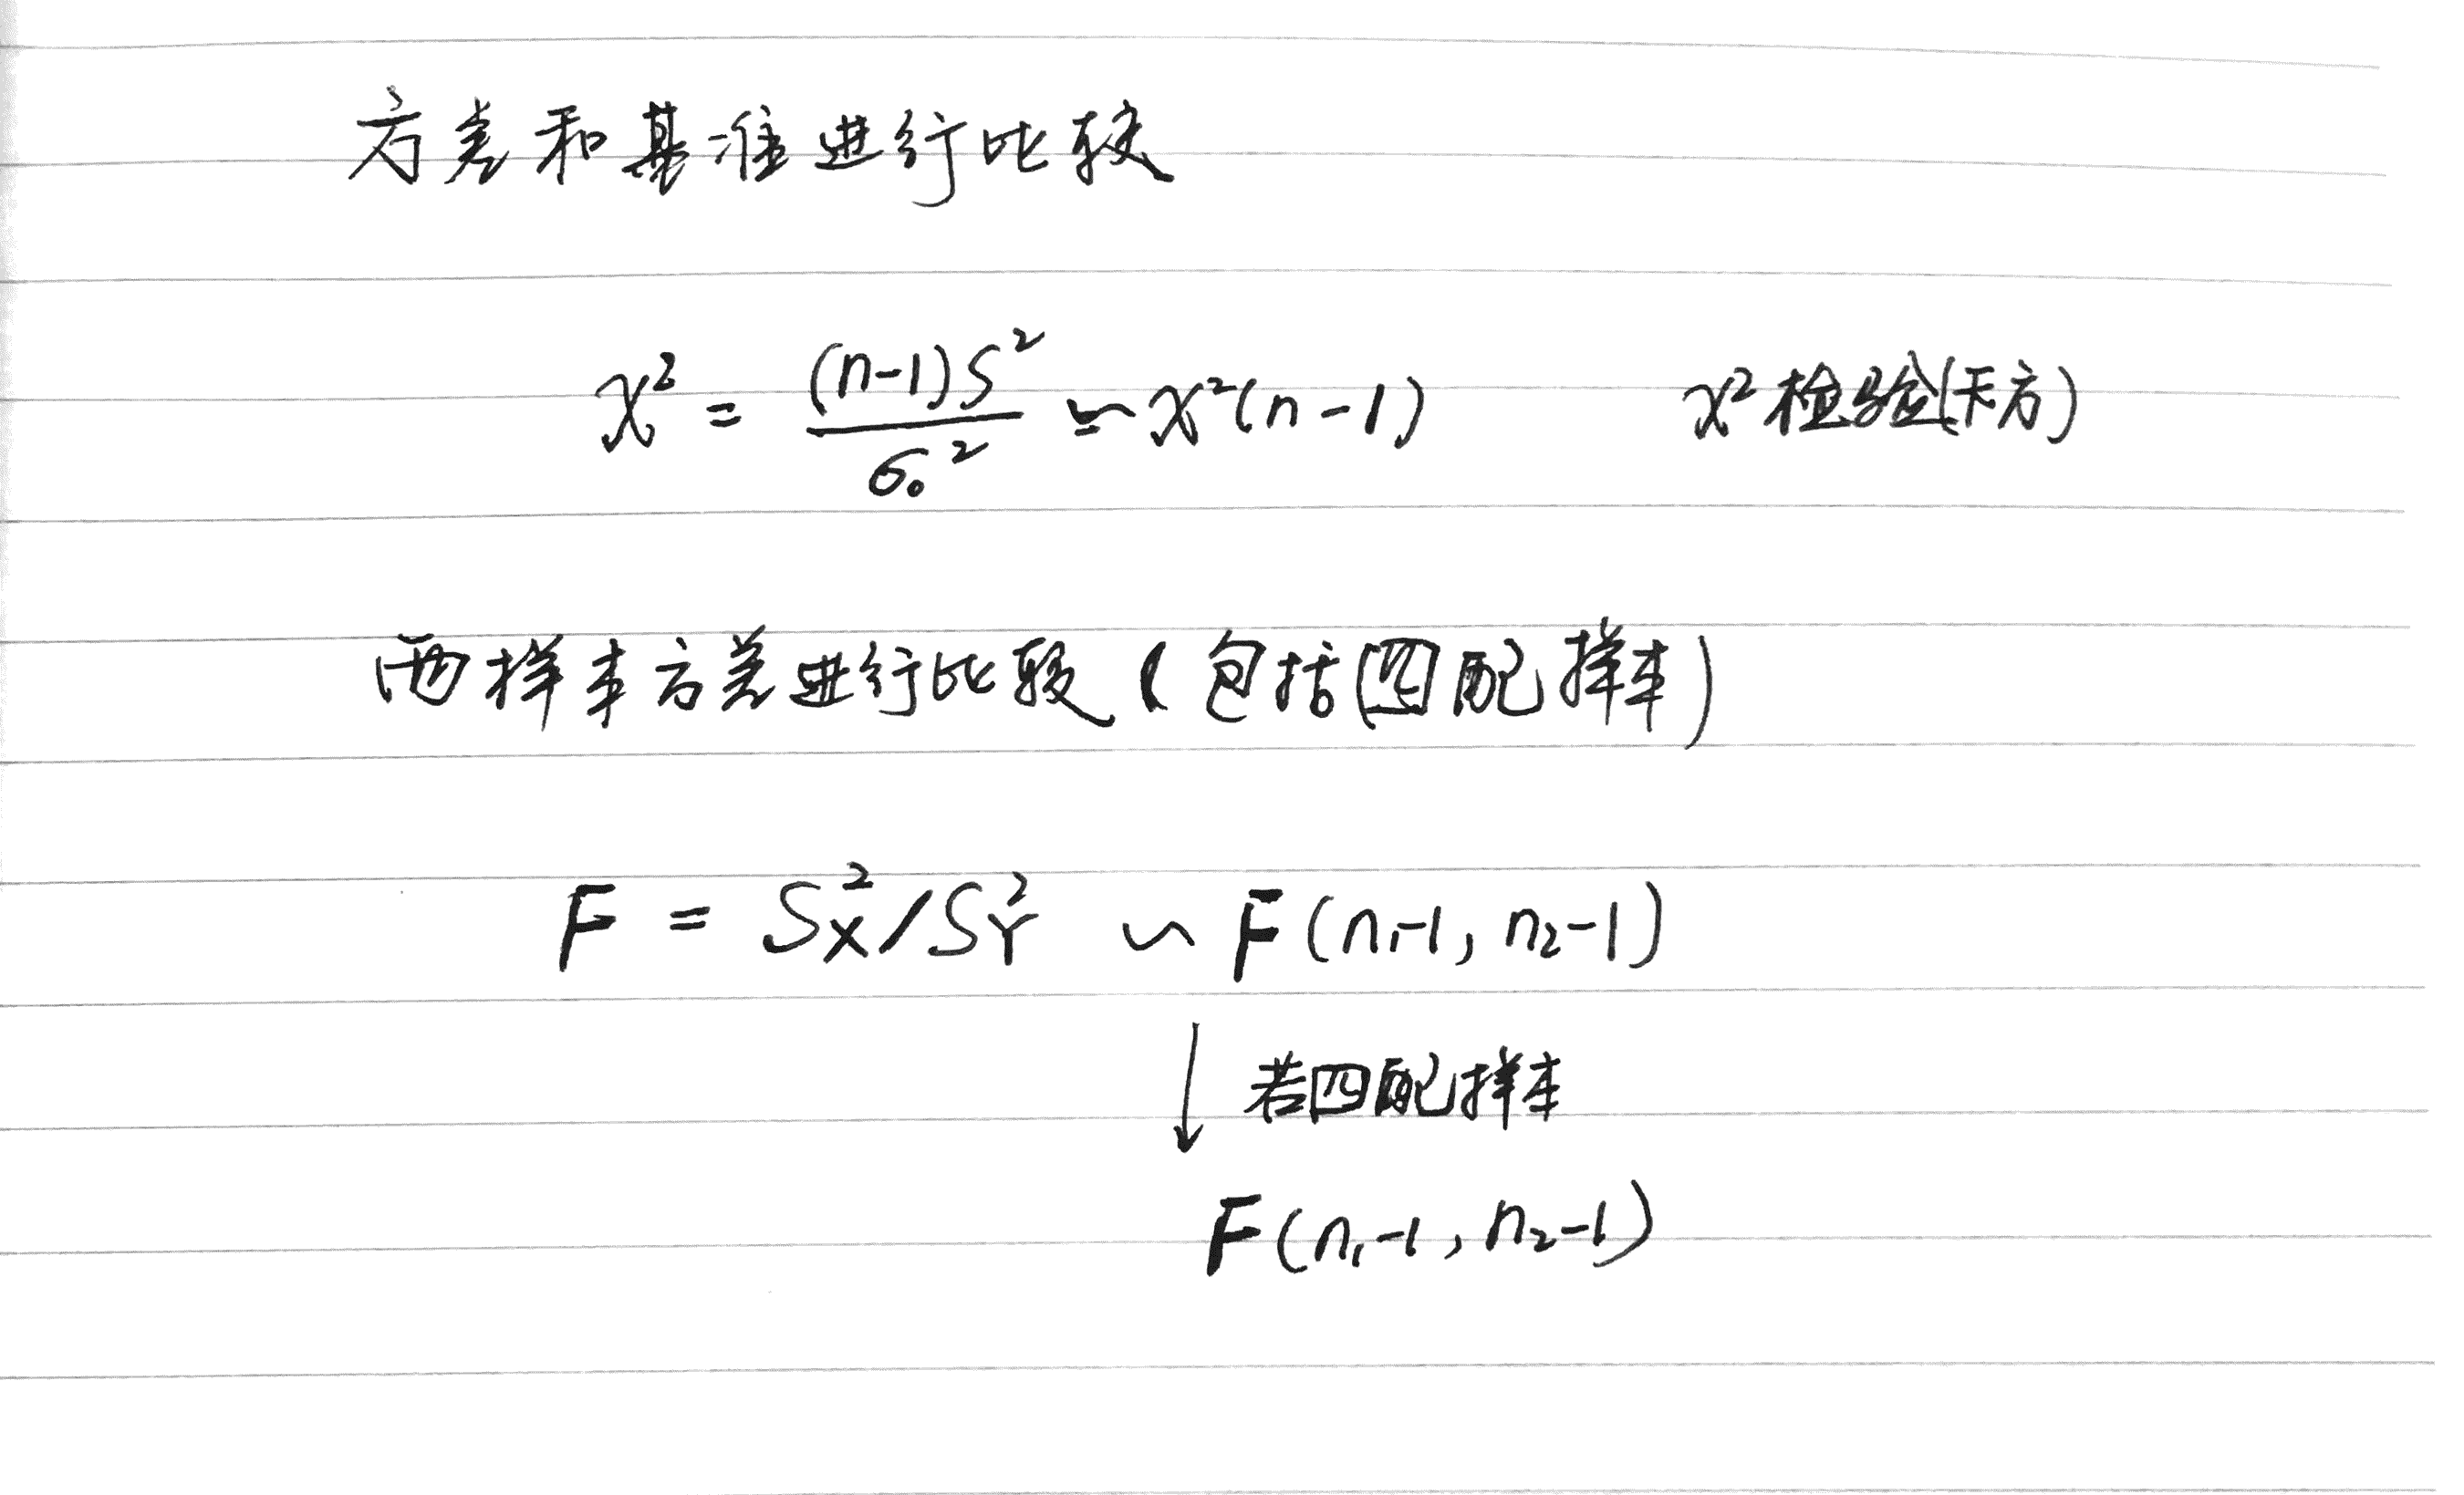 方差和基准进行比较
χ² = (n-1)S² / σ₀² ~ χ²(n-1) χ²检验(卡方)
两样本方差进行比较 (包括匹配样本)
F = S_X²/S_Y² ~ F(n₁-1, n₂-1)
↓ 若匹配样本
F(n₁-1, n₂-1)